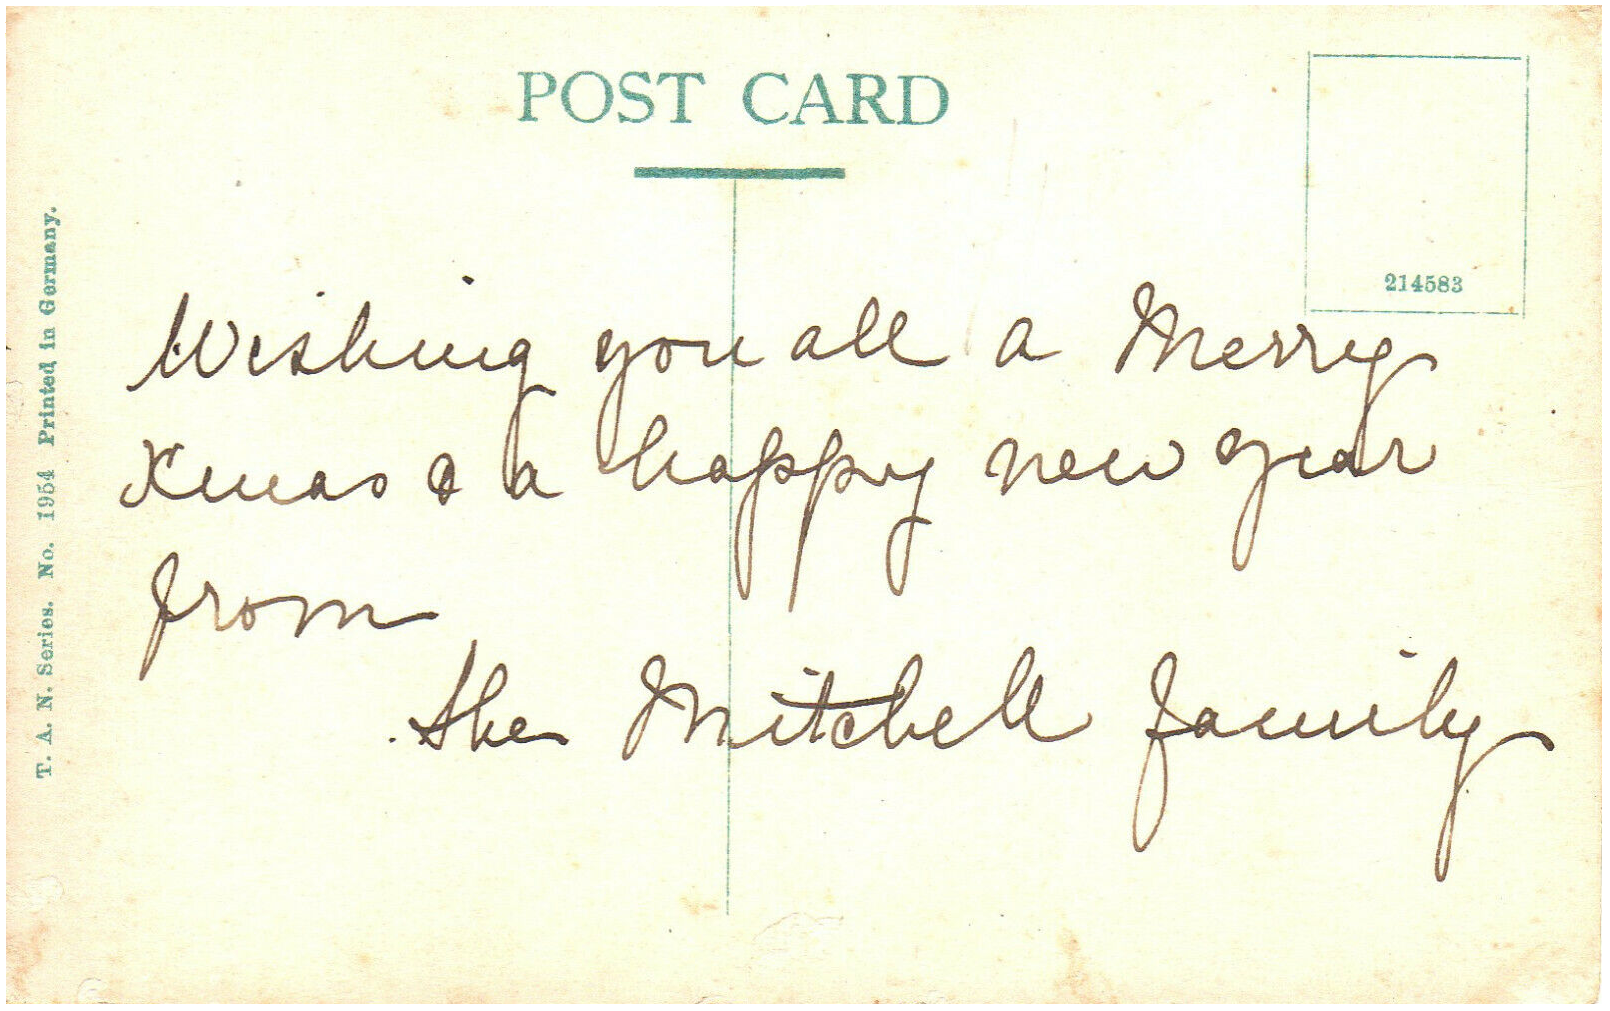 POST CARD
214583
T. A. N. Series. No. 1954 Printed in Germany.
Wishing you all a Merry
Xmas & a happy new year
from
the Mitchell family